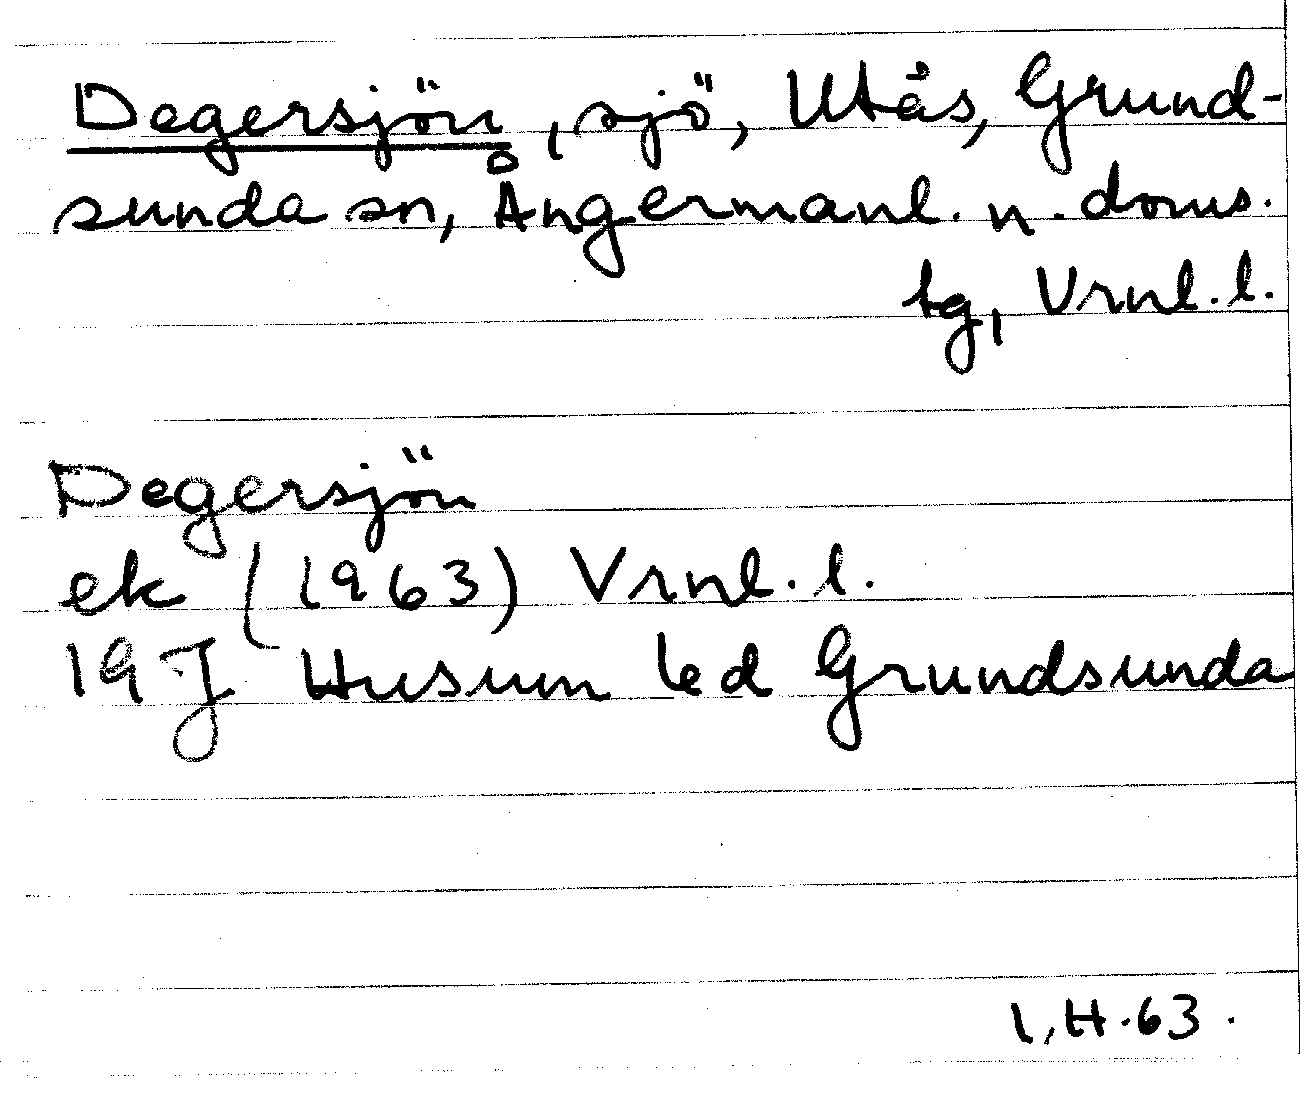 Degersjön, sjö, Utås, Grund-
sunda sn, Ångermanl. n. doms.
tg, Vrnl. l.
Degersjön
ek (1963) Vrnl. l.
19 J Husum 6d Grundsunda
I.H.63.